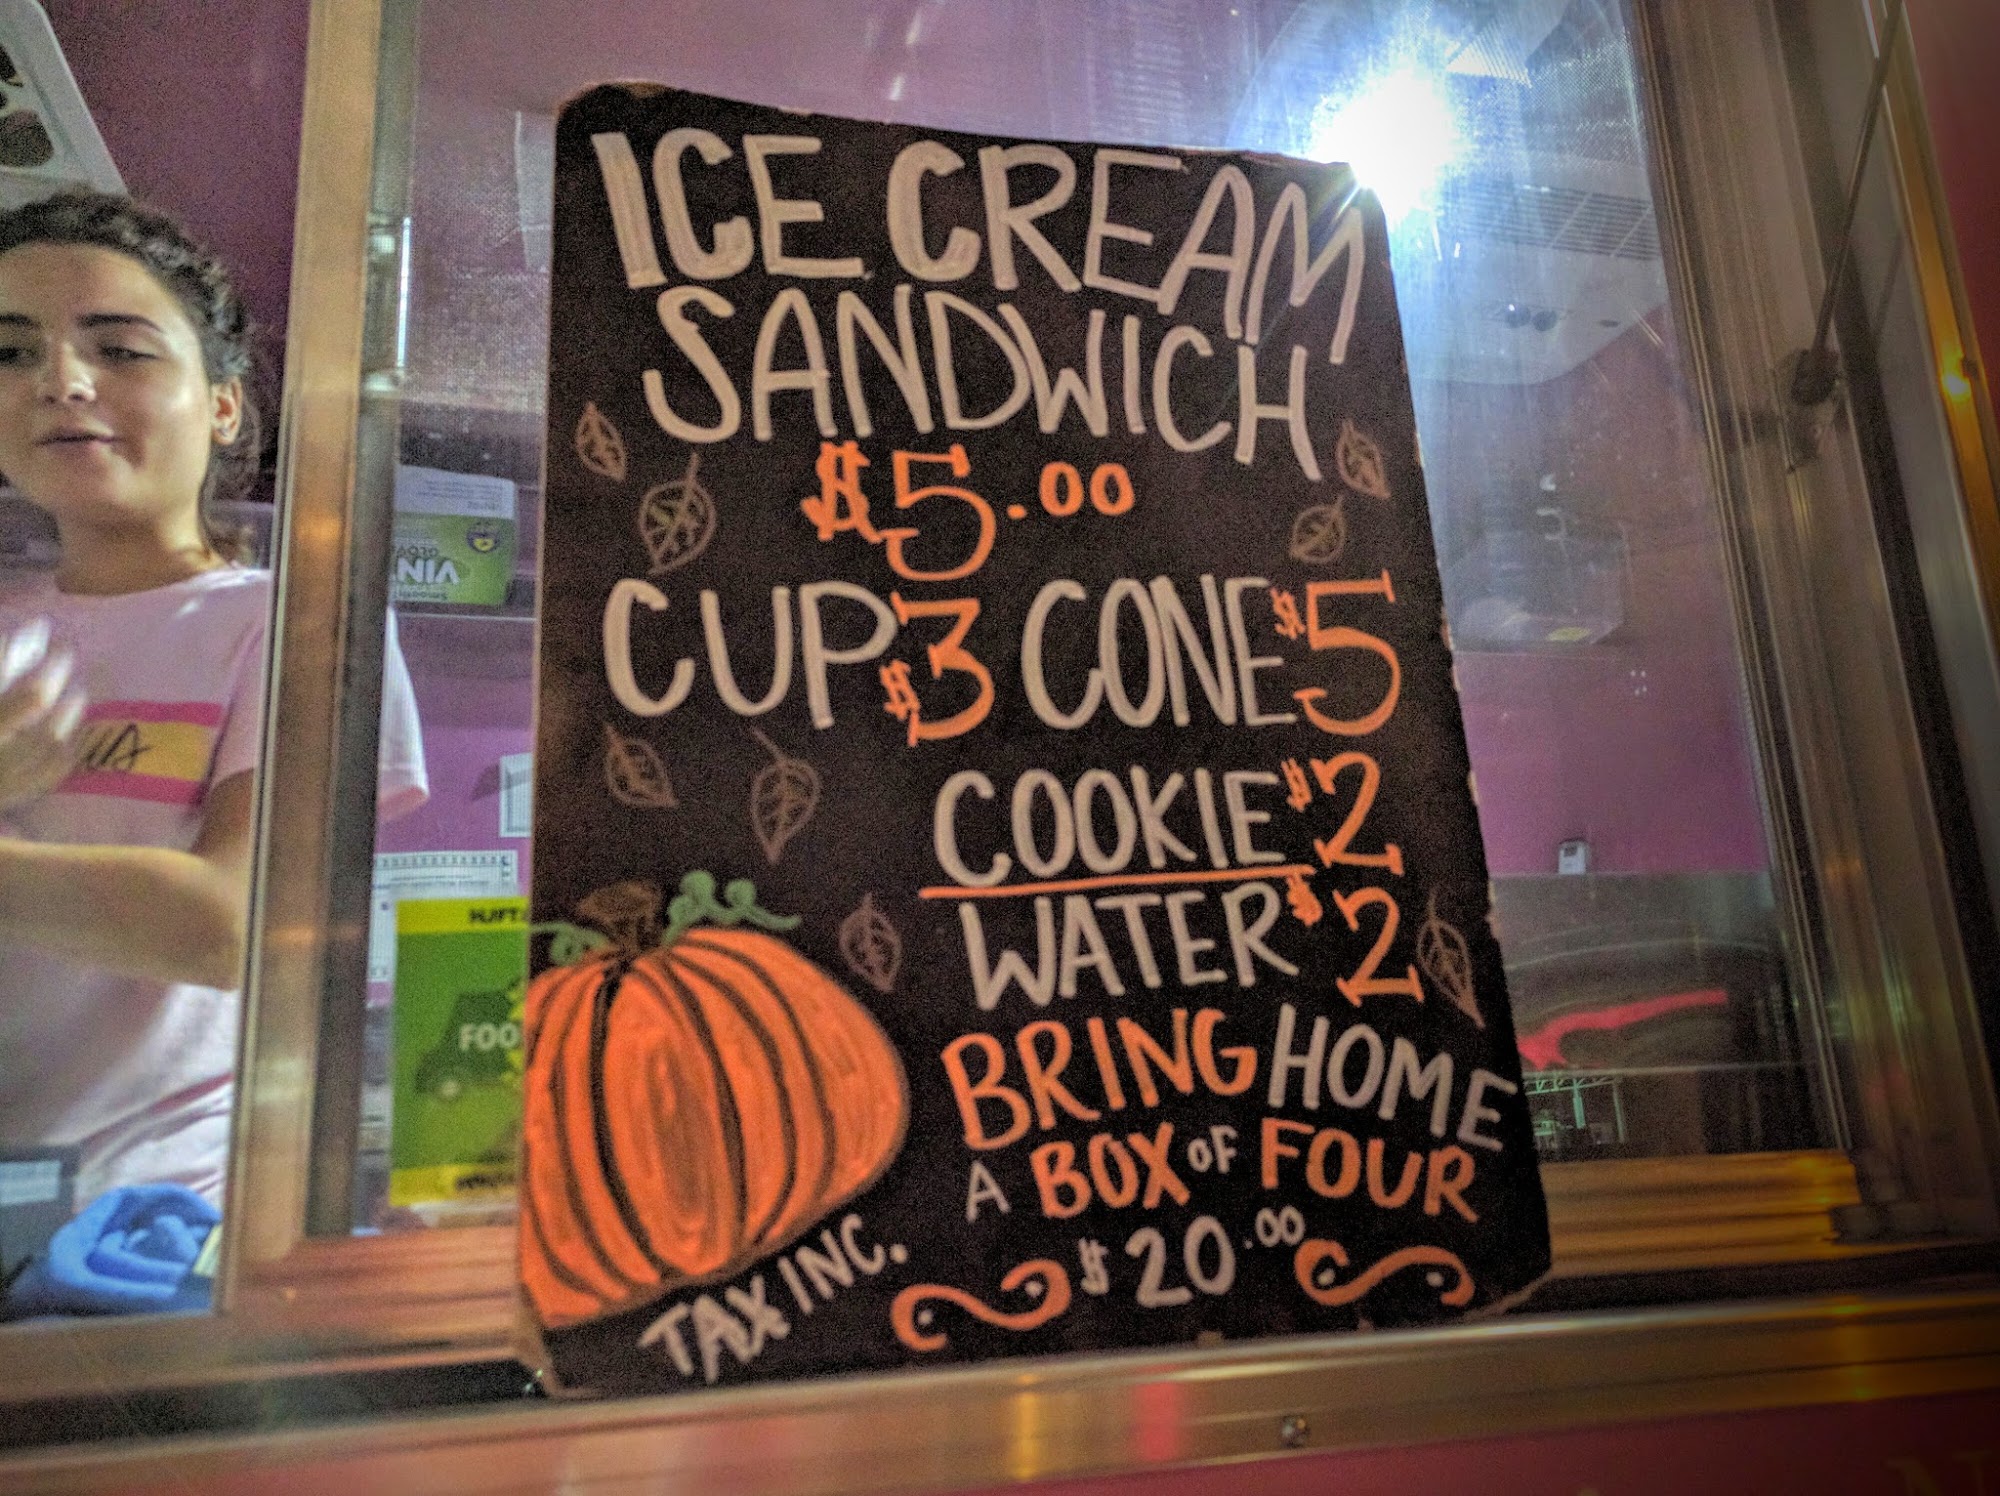 ICE CREAM
SANDWICH
$5.00
CUP $3 CONE $5
COOKIE $2
WATER $2
BRING HOME
A BOX OF FOUR
$20.00
TAX INC.
FOO